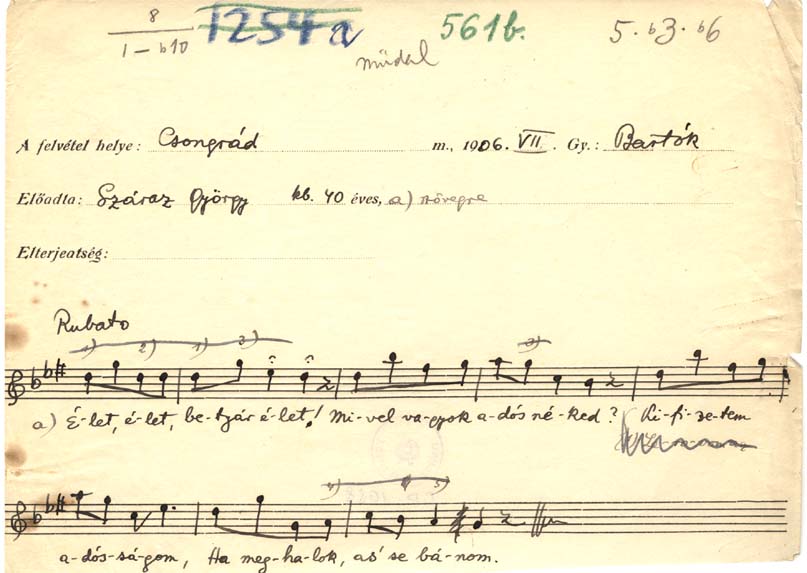 8 1254a 561b. 5. b3. b6
1 – b10 műdal
A felvétel helye: Csongrád m., 1906. VII. Gy.: Bartók
Előadta: Száraz György kb. 40 éves, a) szövegre
Elterjeatség:
Rubato
1) 2) 1) 3) 3)
a) É-let, é-let, be-tyár é-let! Mi-vel va-gyok a-dós né-ked? Ki-fi-ze-tem
4) 5)
a-dós-sá-gom, Ha meg-ha-lok, as' se bá-nom.